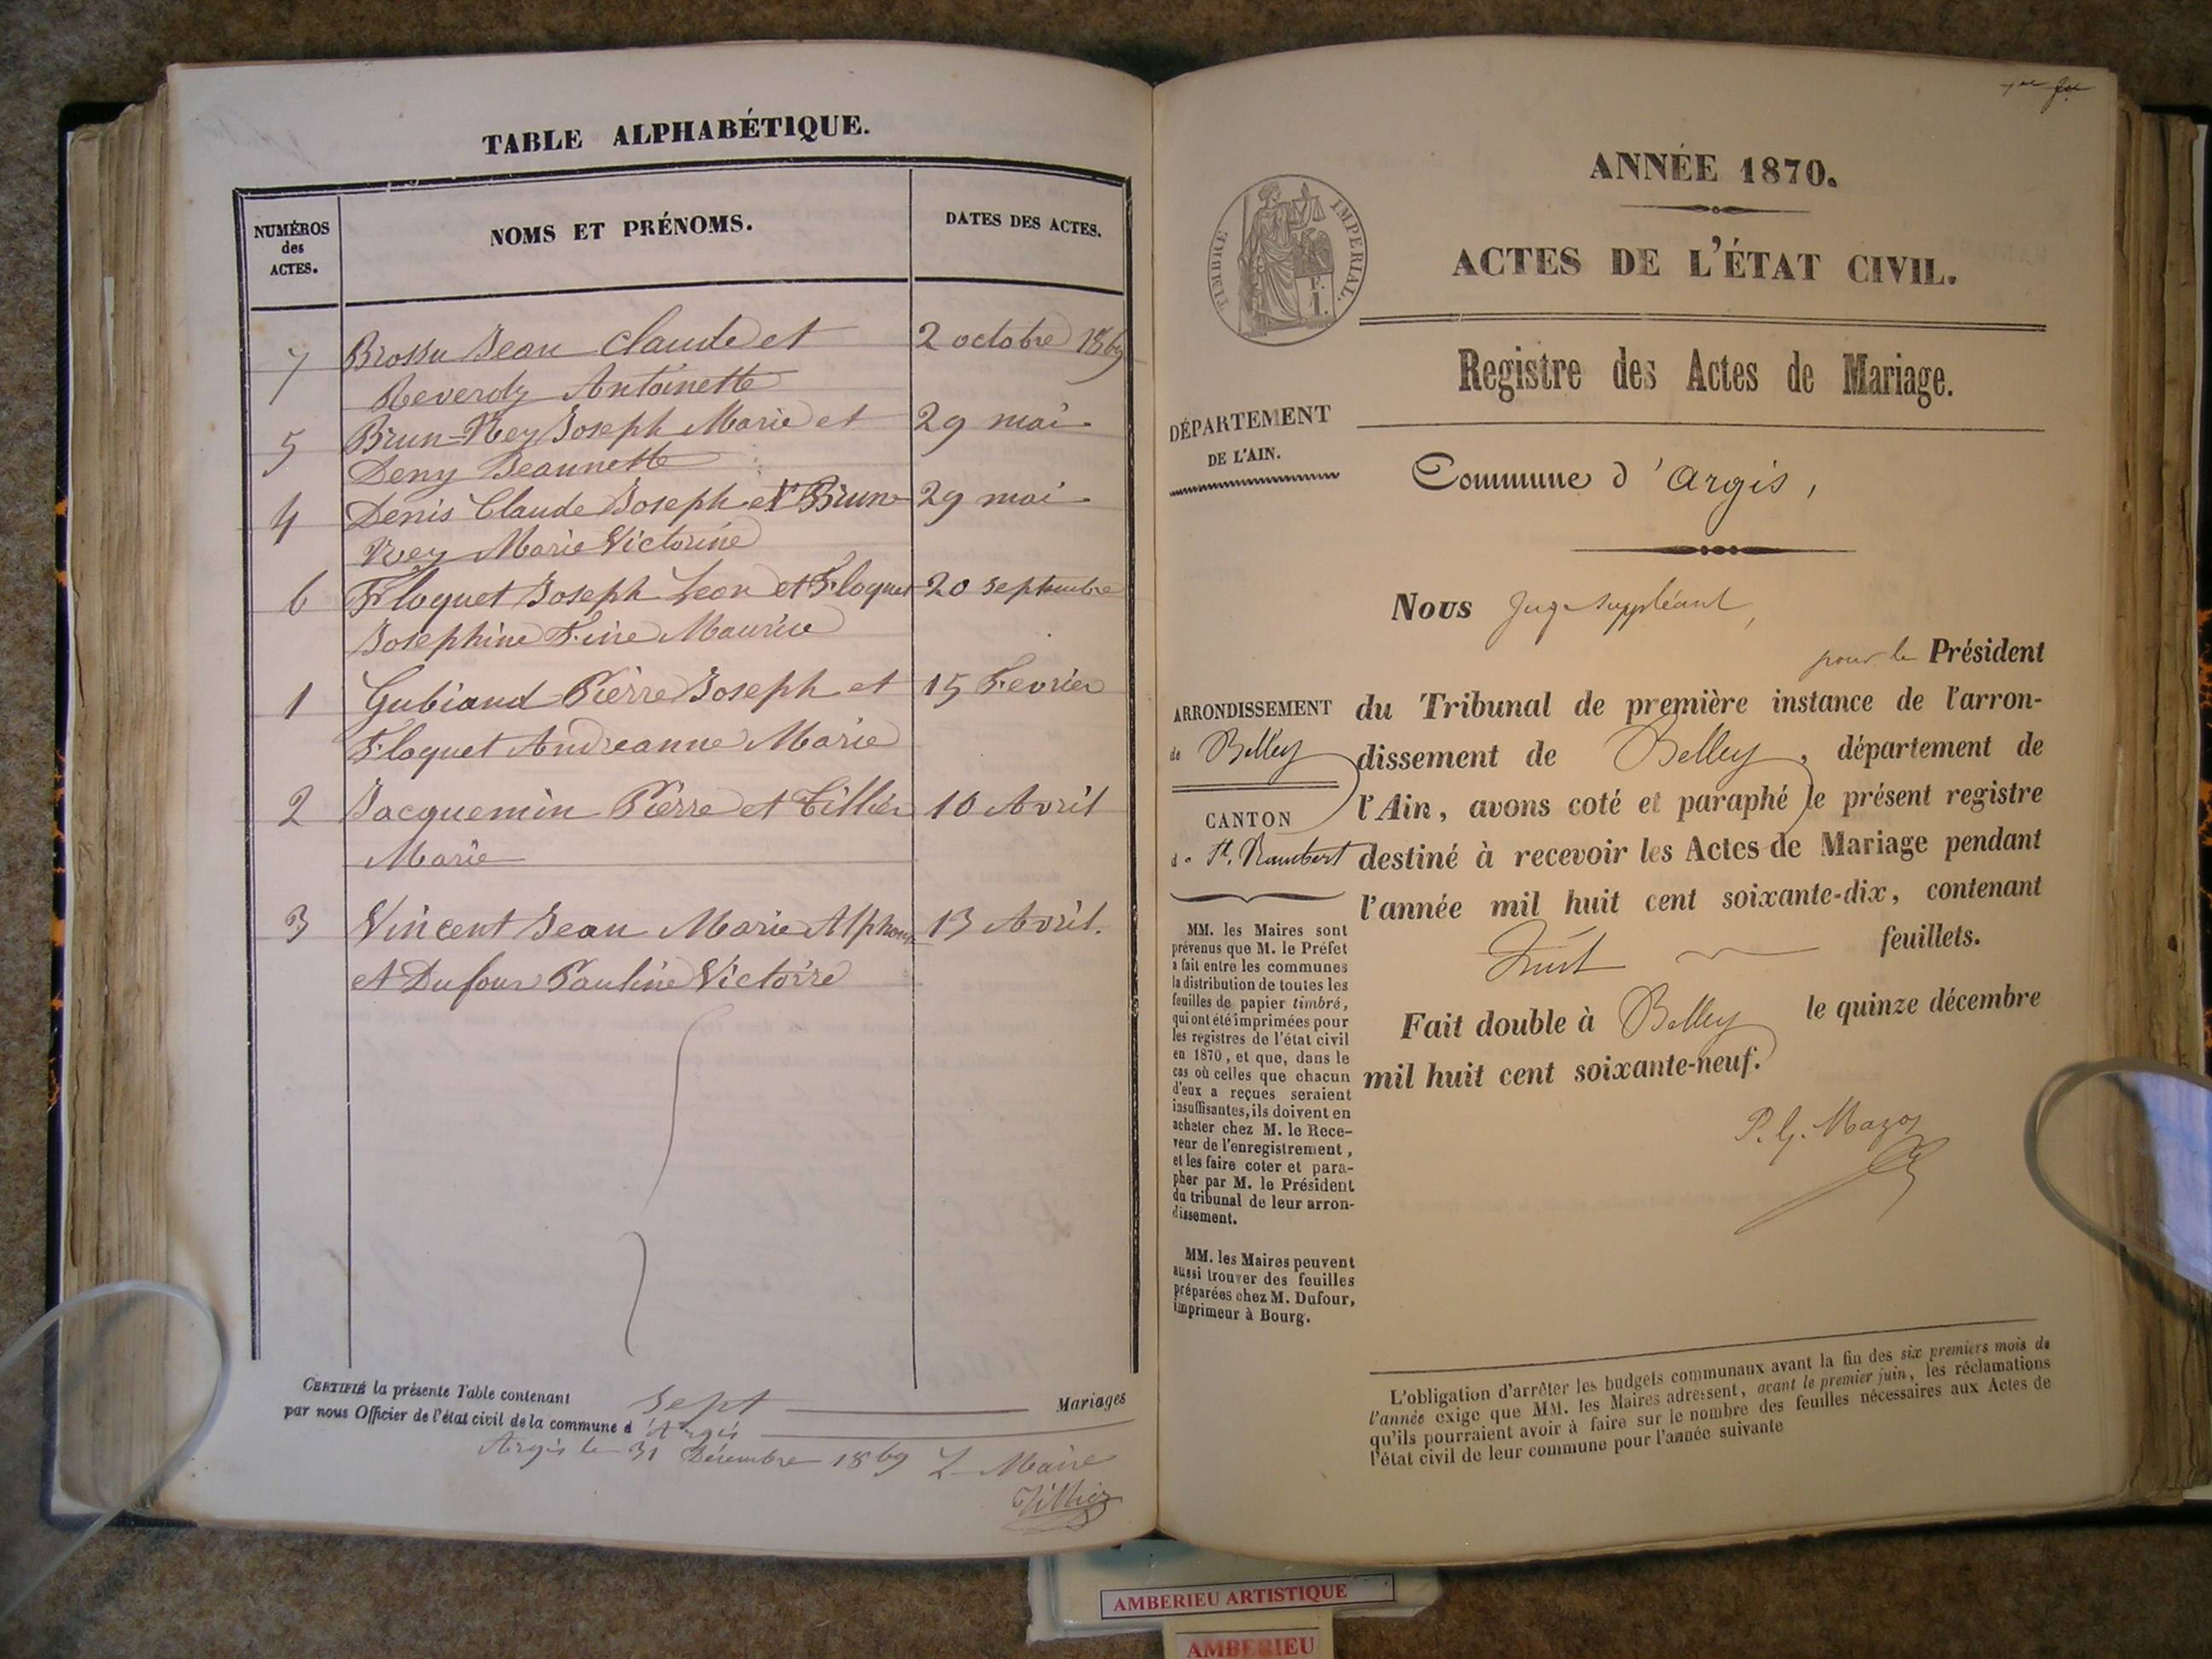 TABLE ALPHABÉTIQUE.
NUMÉROS
des
ACTES.
NOMS ET PRÉNOMS.
DATES DES ACTES.
7 Brossu Jean Claude et 2 octobre 1869
Reverdy Antoinette
5 Brun-Vey Joseph Marie et 29 mai
Deny Jeannette
4 Denis Claude Joseph et Brun 29 mai
Vey Marie Victorine
6 Floquet Joseph Leon et Floquet 20 septembre
Josephine Maurice
1 Gubiand Pierre Joseph et 15 Fevrier
Floquet Andreanne Marie
2 Jacquemin Pierre et Tillier 10 Avril
Marie
3 Vincent Jean Marie Alphonse 13 Avril.
et Dufour Pauline Victoire
CERTIFIÉ la présente Table contenant sept Mariages
par nous Officier de l'état civil de la commune d'Argis
Argis le 31 Décembre 1869 Le Maire
Tillier
ANNÉE 1870.
TIMBRE IMPERIAL.
ACTES DE L'ÉTAT CIVIL.
Registre des Actes de Mariage.
DÉPARTEMENT
DE L'AIN.
Commune d'Argis,
Nous Juge suppléant,
pour le Président
ARRONDISSEMENT
de Belley
CANTON
de St. Rambert
du Tribunal de première instance de l'arron-
dissement de Belley, département de
l'Ain, avons coté et paraphé le présent registre
destiné à recevoir les Actes de Mariage pendant
l'année mil huit cent soixante-dix, contenant
huit feuillets.
Fait double à Belley le quinze décembre
mil huit cent soixante-neuf.
MM. les Maires sont
prévenus que M. le Préfet
a fait entre les communes
la distribution de toutes les
feuilles de papier timbré,
qui ont été imprimées pour
les registres de l'état civil
en 1870, et que, dans le
cas où celles que chacun
d'eux a reçues seraient
insuffisantes, ils doivent en
acheter chez M. le Rece-
veur de l'enregistrement,
et les faire coter et para-
pher par M. le Président
du tribunal de leur arron-
dissement.
MM. les Maires peuvent
aussi trouver des feuilles
préparées chez M. Dufour,
imprimeur à Bourg.
L'obligation d'arrêter les budgets communaux avant la fin des six premiers mois de
l'année exige que MM. les Maires adressent, avant le premier juin, les réclamations
qu'ils pourraient avoir à faire sur le nombre des feuilles nécessaires aux Actes de
l'état civil de leur commune pour l'année suivante
AMBERIEU ARTISTIQUE
AMBERIEU